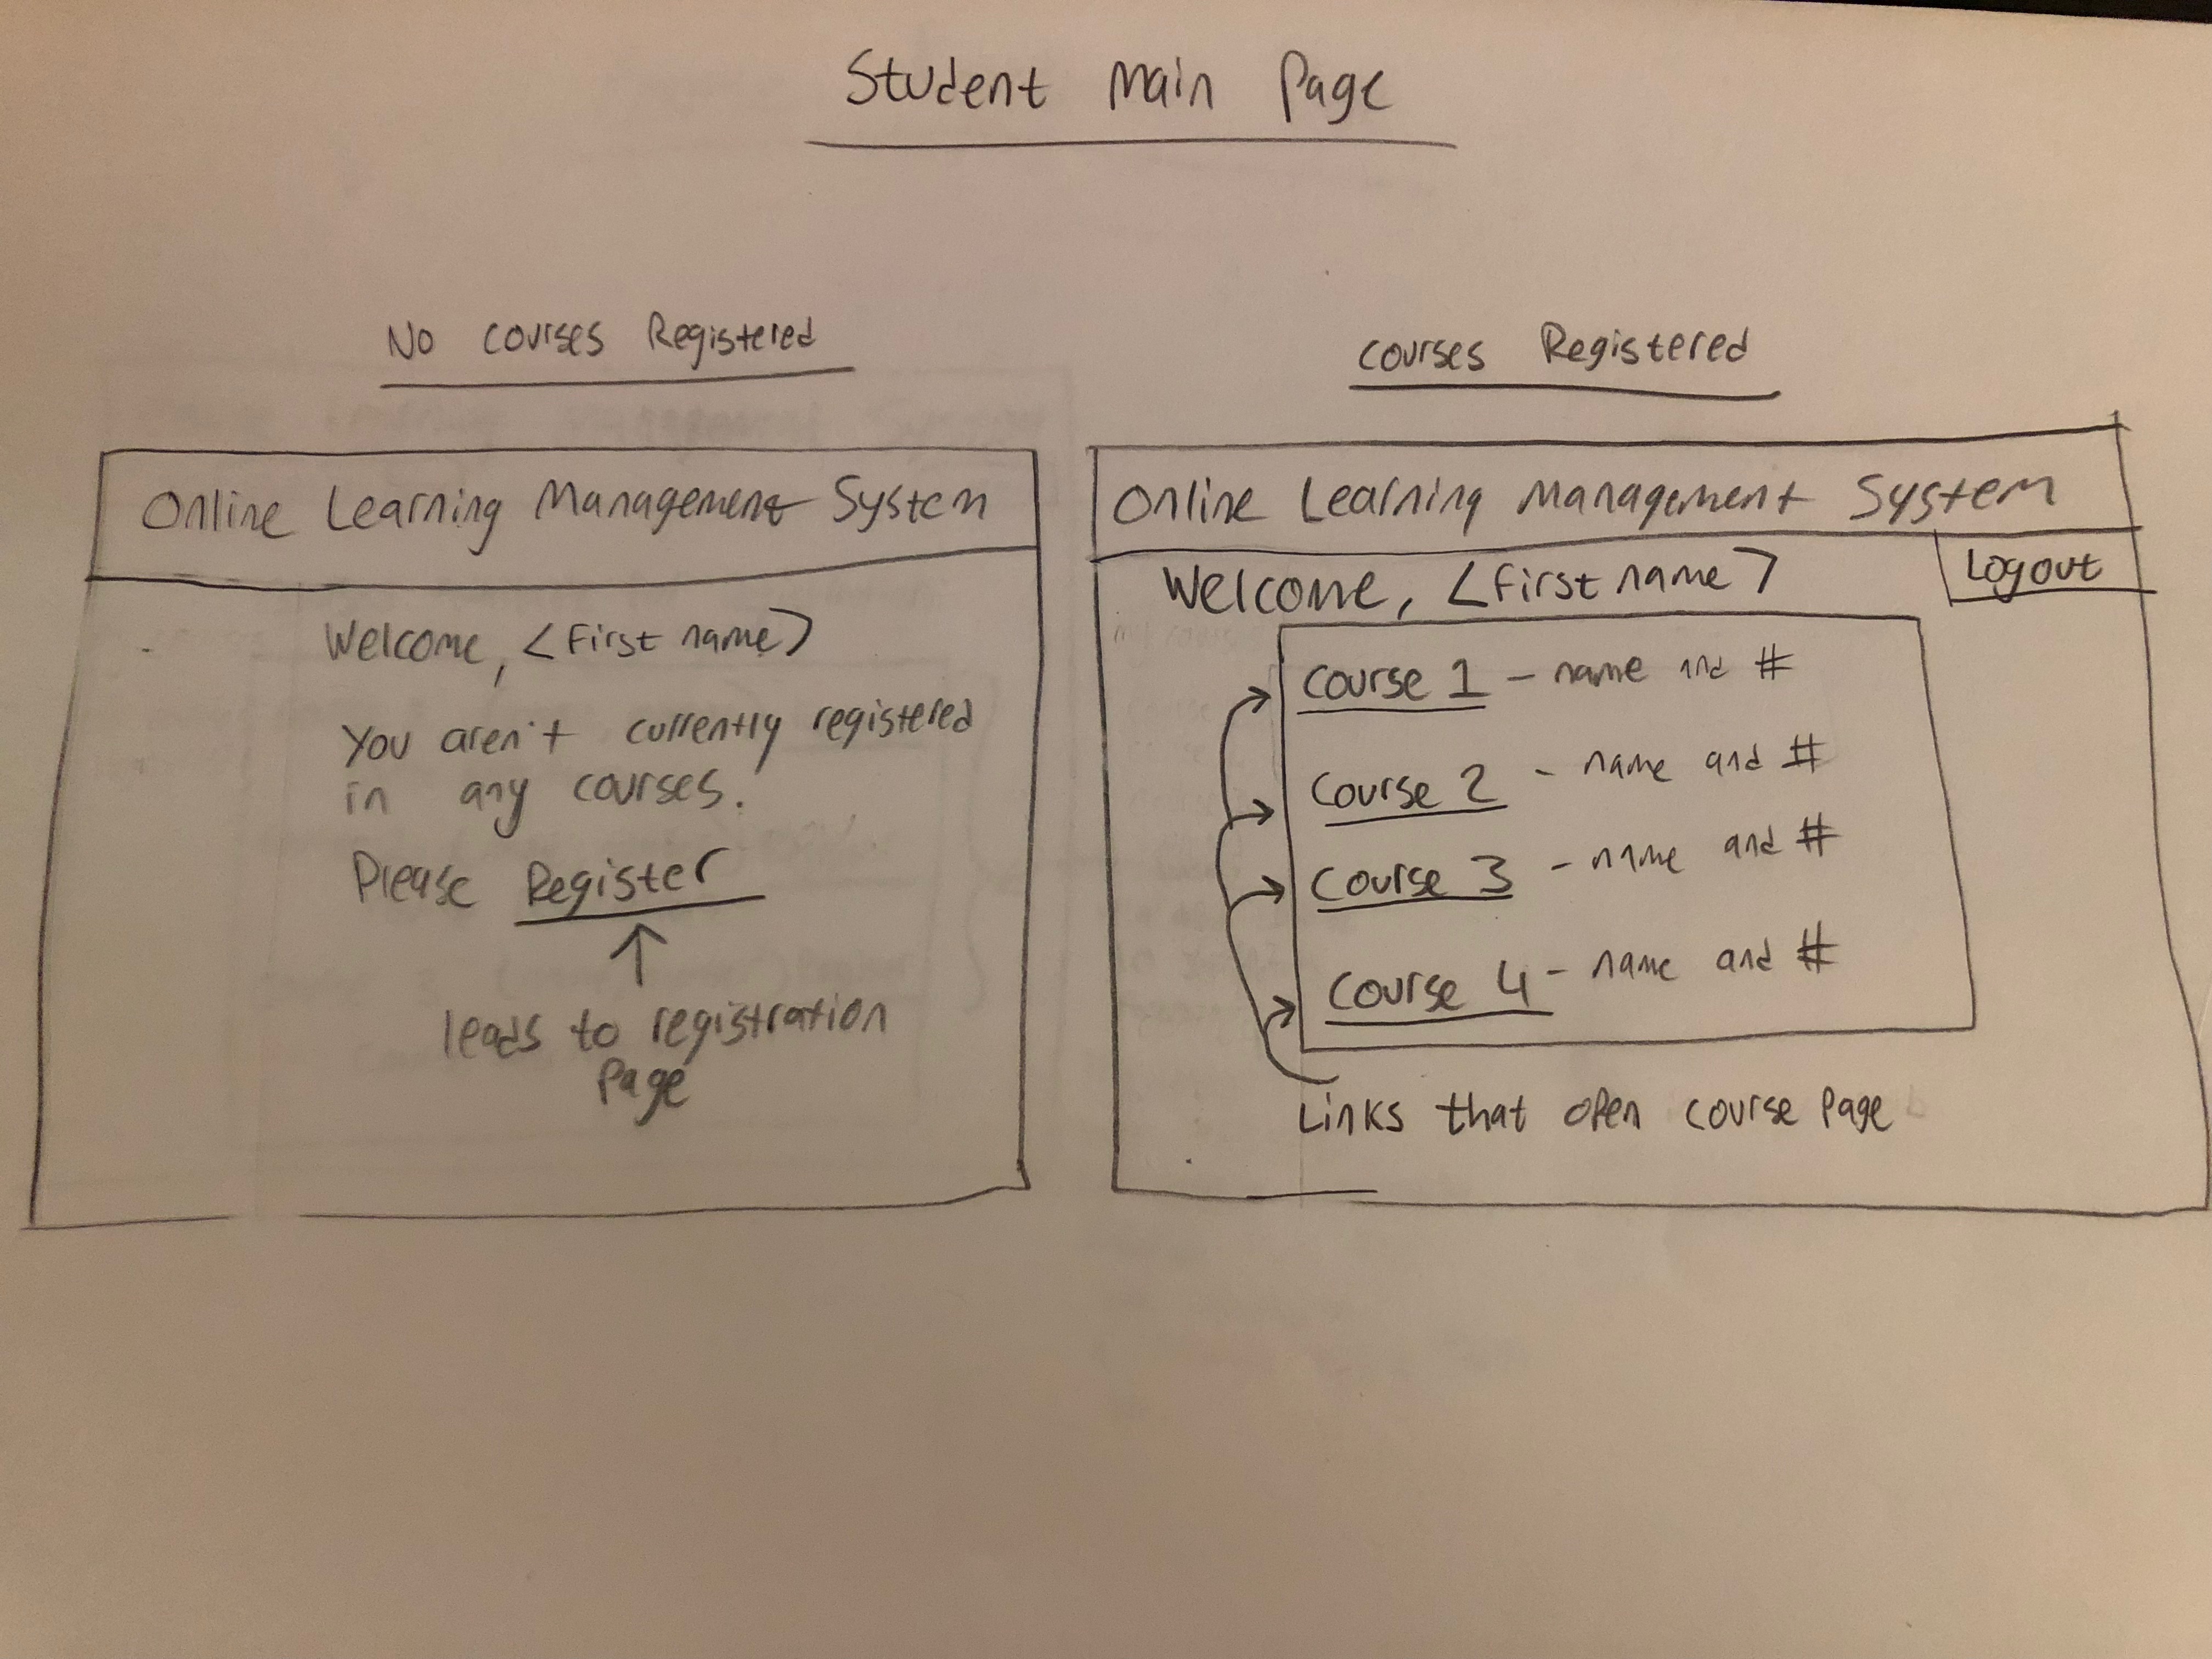 Student Main Page
No courses Registered
Online Learning Management System
Welcome, <First name>
You aren't currently registered
in any courses.
Please Register
leads to registration
Page
courses Registered
Online Learning Management System
Logout
Welcome, <First name>
Course 1 - name and #
Course 2 - name and #
Course 3 - name and #
Course 4 - name and #
Links that open course page